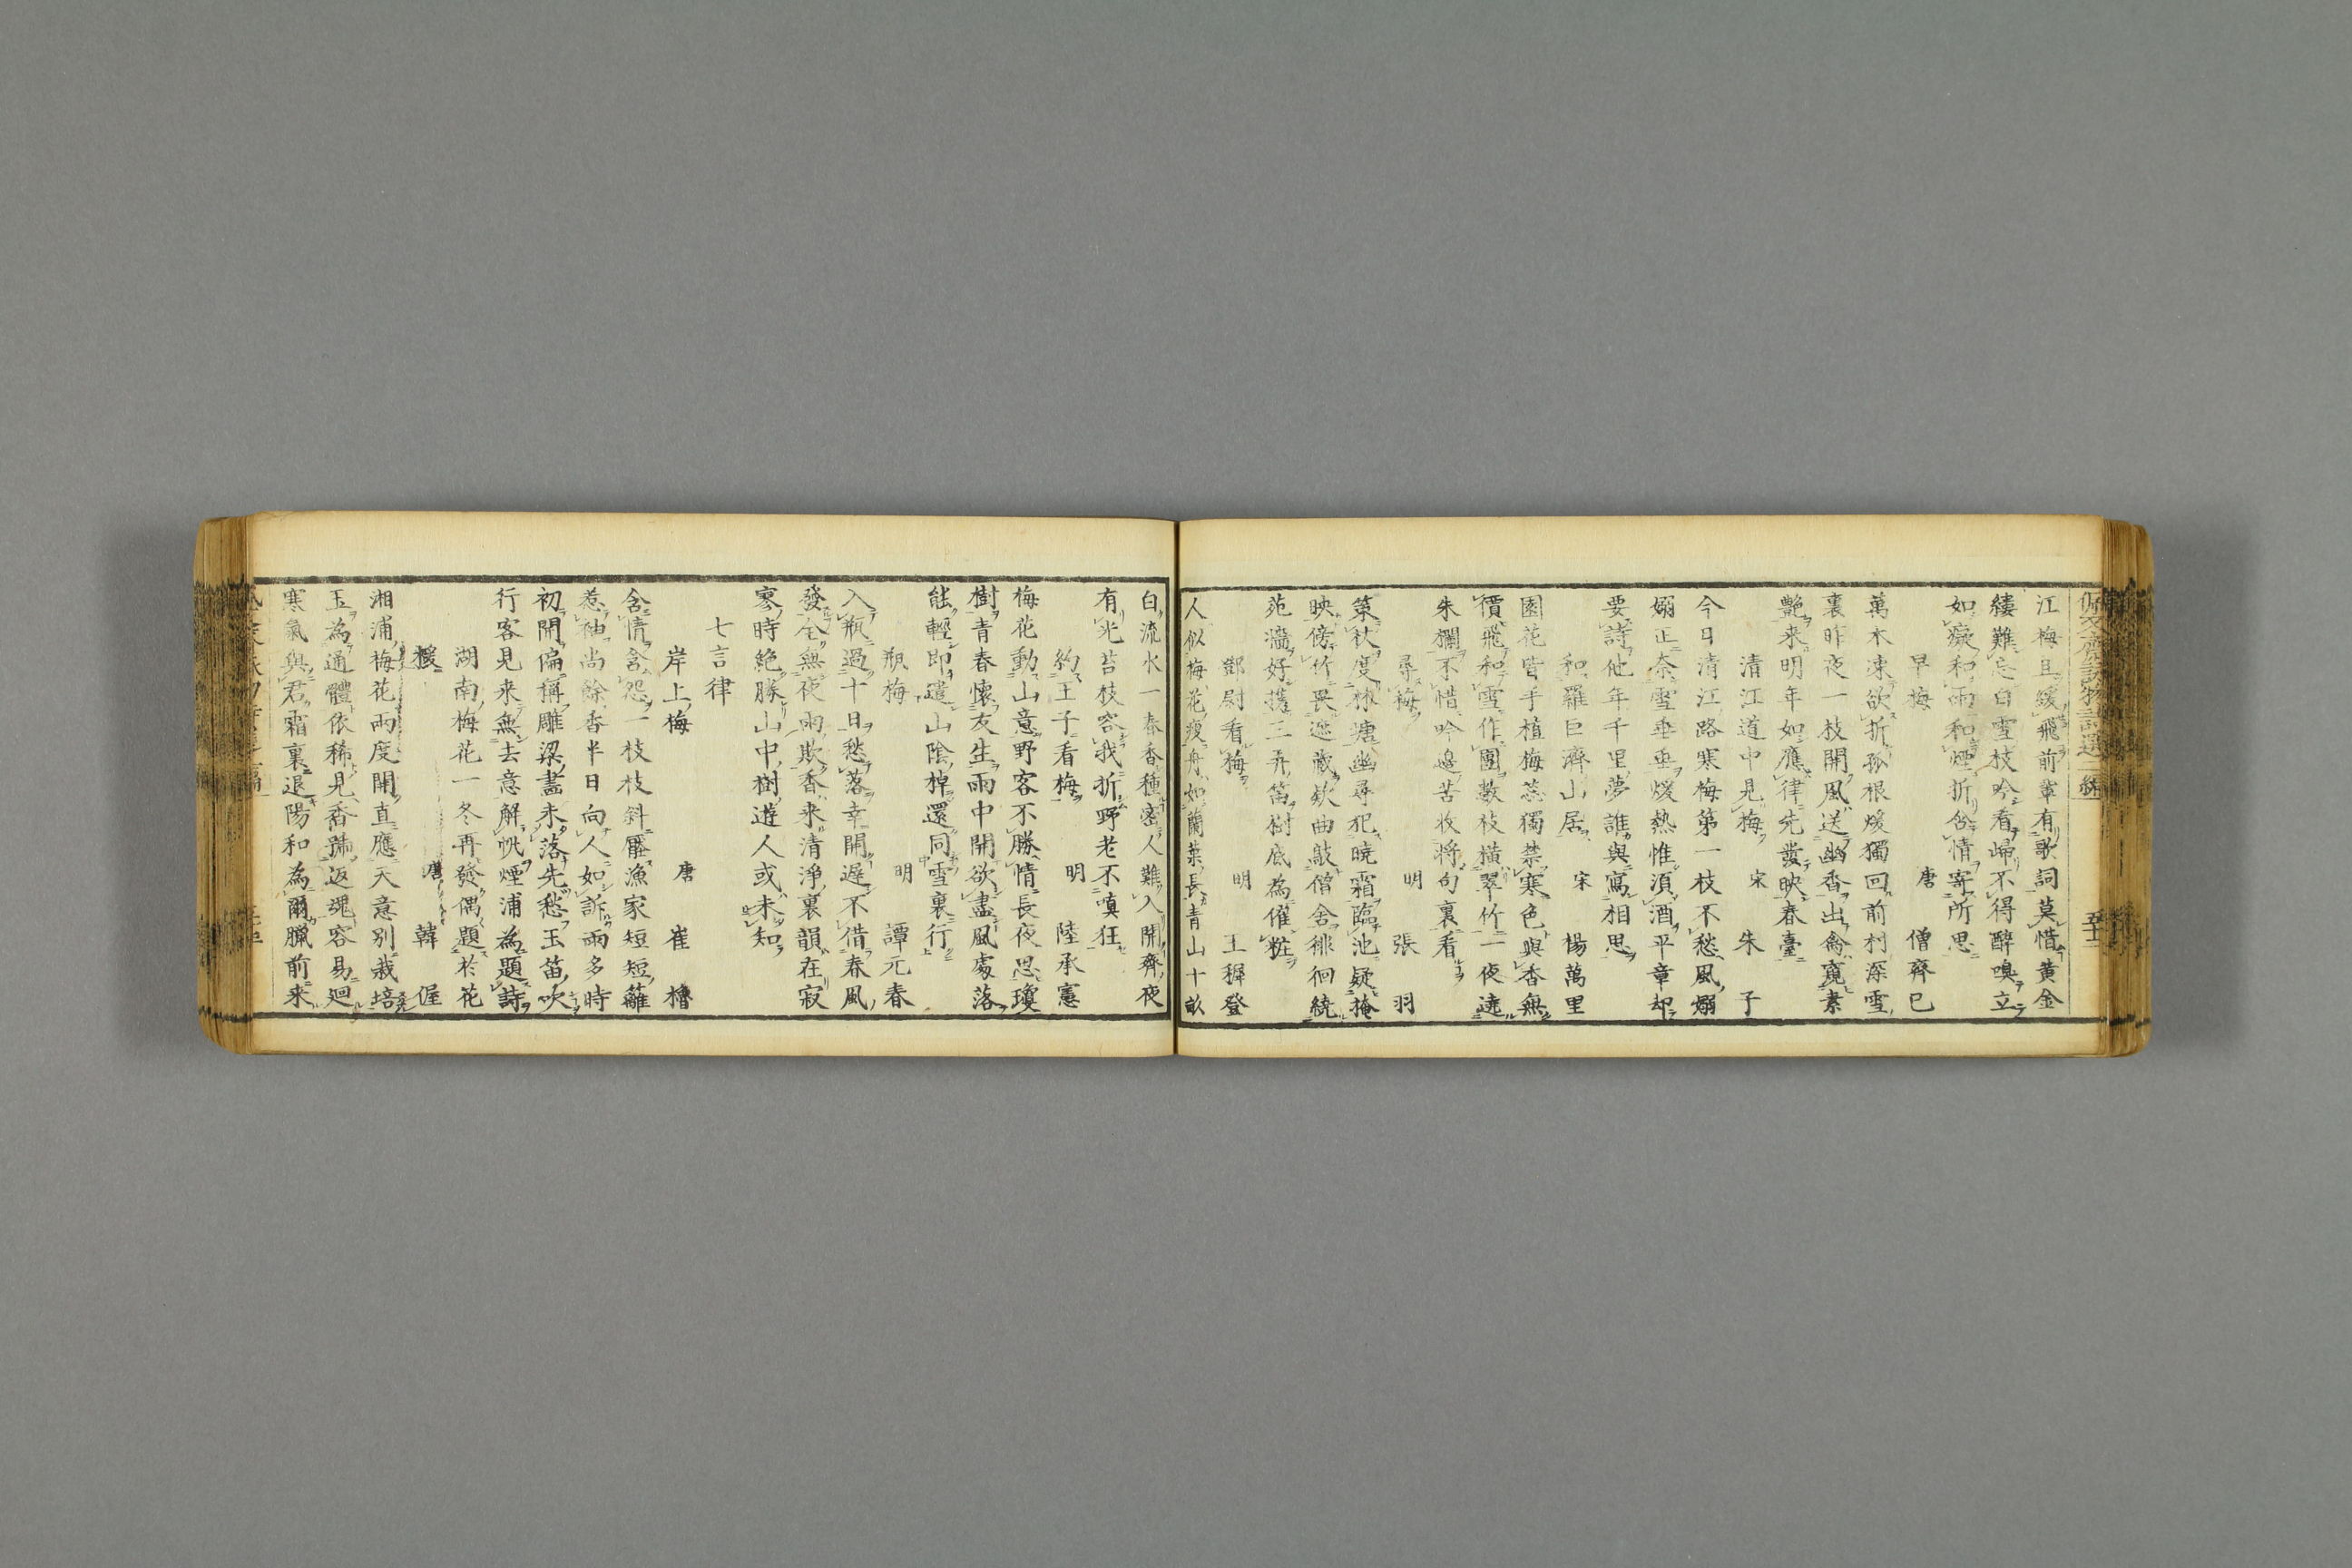 佩文齋詠物詩選二編
江梅且緩飛前輩有歌詞莫惜黃金
縷難忘白雪枝吟看歸不得醉嗅立
如癡和雨和煙折含情寄所思
早梅 唐 僧齊已
萬木凍欲折孤根煖獨回前村深雪
裏昨夜一枝開風送幽香出禽窺素
艷来明年如應律先發映春臺
清江道中見梅 宋 朱子
今日清江路寒梅第一枝不愁風嫋
嫋正奈雪垂垂煖熱惟須酒平章却
要詩他年千里夢誰與寫相思
和羅巨濟山居 宋 楊萬里
園花皆手植梅蕊獨禁寒色與香無
價飛和雪作團數枝橫翠竹一夜遶
朱欄不惜吟邊苦收將句裏看
尋梅 明 張羽
策杖度林塘幽尋犯曉霜臨池疑掩
映傍竹畏遮藏欹曲敲僧舍徘徊繞
苑牆好攜三弄笛樹底為催粧
鄧尉看梅 明 王穉登
人似梅花瘦舟如蘭葉長青山十畝
白流水一春香種密人難入開齊夜
有光苔枝容我折野老不嗔狂
約王子看梅 明 陸承憲
梅花動山意野客不勝情長夜思瓊
樹青春懷友生雨中開欲盡風處落
能輕即遣山陰棹還同雪裏行
瓶梅 明 譚元春
入瓶過十日愁落幸開遲不借春風
發全無夜雨欺香来清淨裏韻在寂
寥時絶勝山中樹遊人或未知
七言律
岸上梅 唐 崔櫓
含情含怨一枝枝斜壓漁家短短籬
惹袖尚餘香半日向人如訴雨多時
初開偏稱雕梁畫未落先愁玉笛吹
行客見来無去意解帆煙浦為題詩
湖南梅花一冬再發偶題於花
援 唐 韓偓
湘浦梅花兩度開直應天意別栽培
玉為通體依稀見香號返魂容易廻
寒氣與君霜裏退陽和為爾臘前来